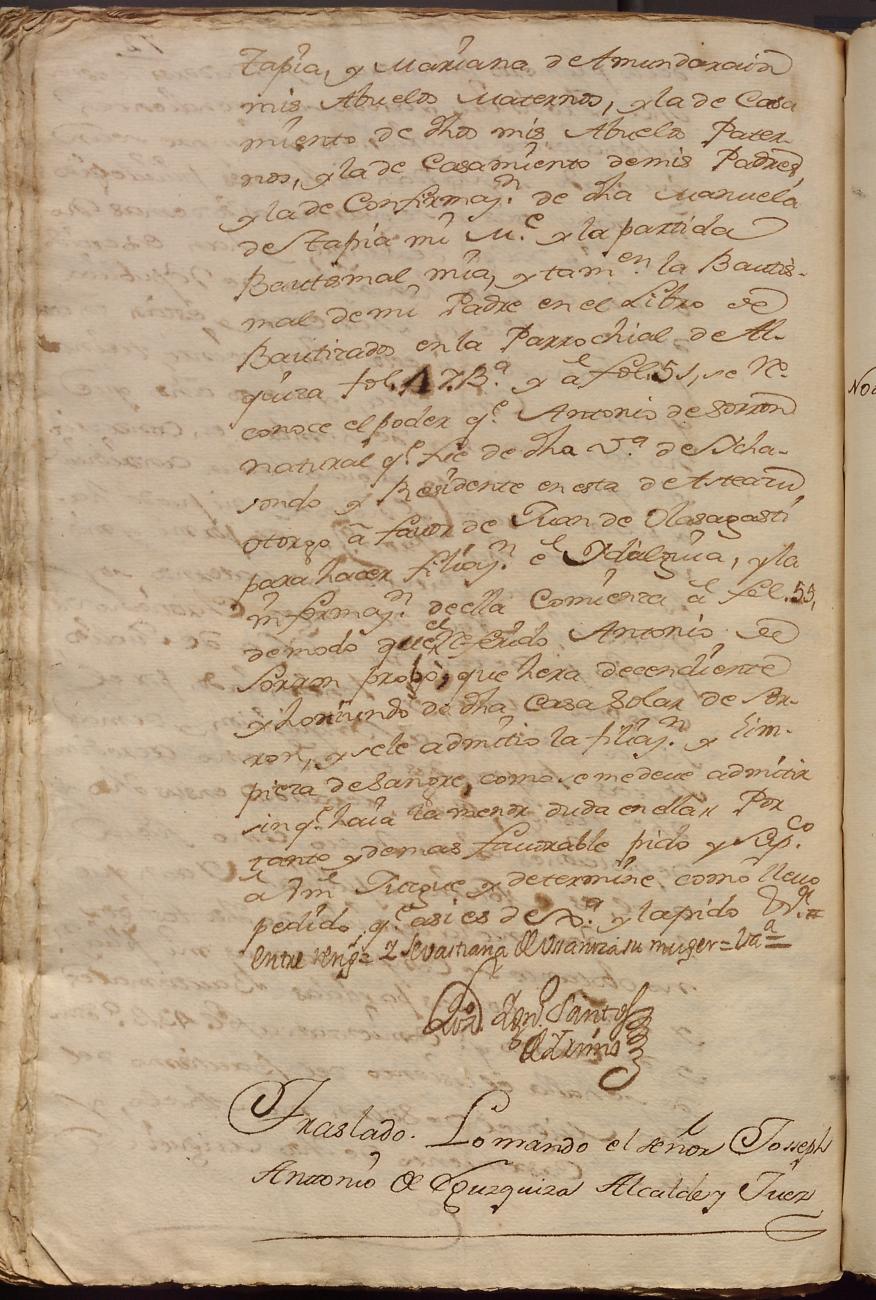 Tapia, y Mariana de Amundarain
mis Abuelos Maternos, y la de Casa
miento de dhos mis Abuelos Pater-
nos, y la de Casamiento de mis Padres,
y la de Confirmaz.n de dha Manuela
de Tapia mi M.e y la partida
Bautismal mia, y tam.en la Bautis-
mal de mi Padre en el Libro de
Bautizados en la Parrochial de Al-
quiza fol. 17.B.ta y al fol. 51, se Re-
conoce el poder q.e Antonio de Sorron
natural q.e fue de dha V.a de Ycha-
sondo y Residente en esta de Asteasu
otorgo a favor de Juan de Olasagasti
para hacer filiaz.n e Ydalguia, y la
informaz.n de ella Comienza al fol. 55,
de modo que el referido Antonio de
Sorron probò, que hera decendiente
y horiundo de dha Casa Solar de Sor-
ron, y se le admitio la filiaz.n y lim-
pieza de Sangre, como se me deve admitir
sin q.e haia la menor duda en ella. Por
tanto y demas favorable pido y Sup.co
a Vm Juzgue y determine como llevo
pedido, q.e asi es de Xa. y la pido &.a =
entre reng.s = y Sevastiana de su muger = Va =
Liz.do Dn. Santos
Traslado. Lo mando el señor Joseph
Antonio de Yzuzquiza Alcalde y Juez
No